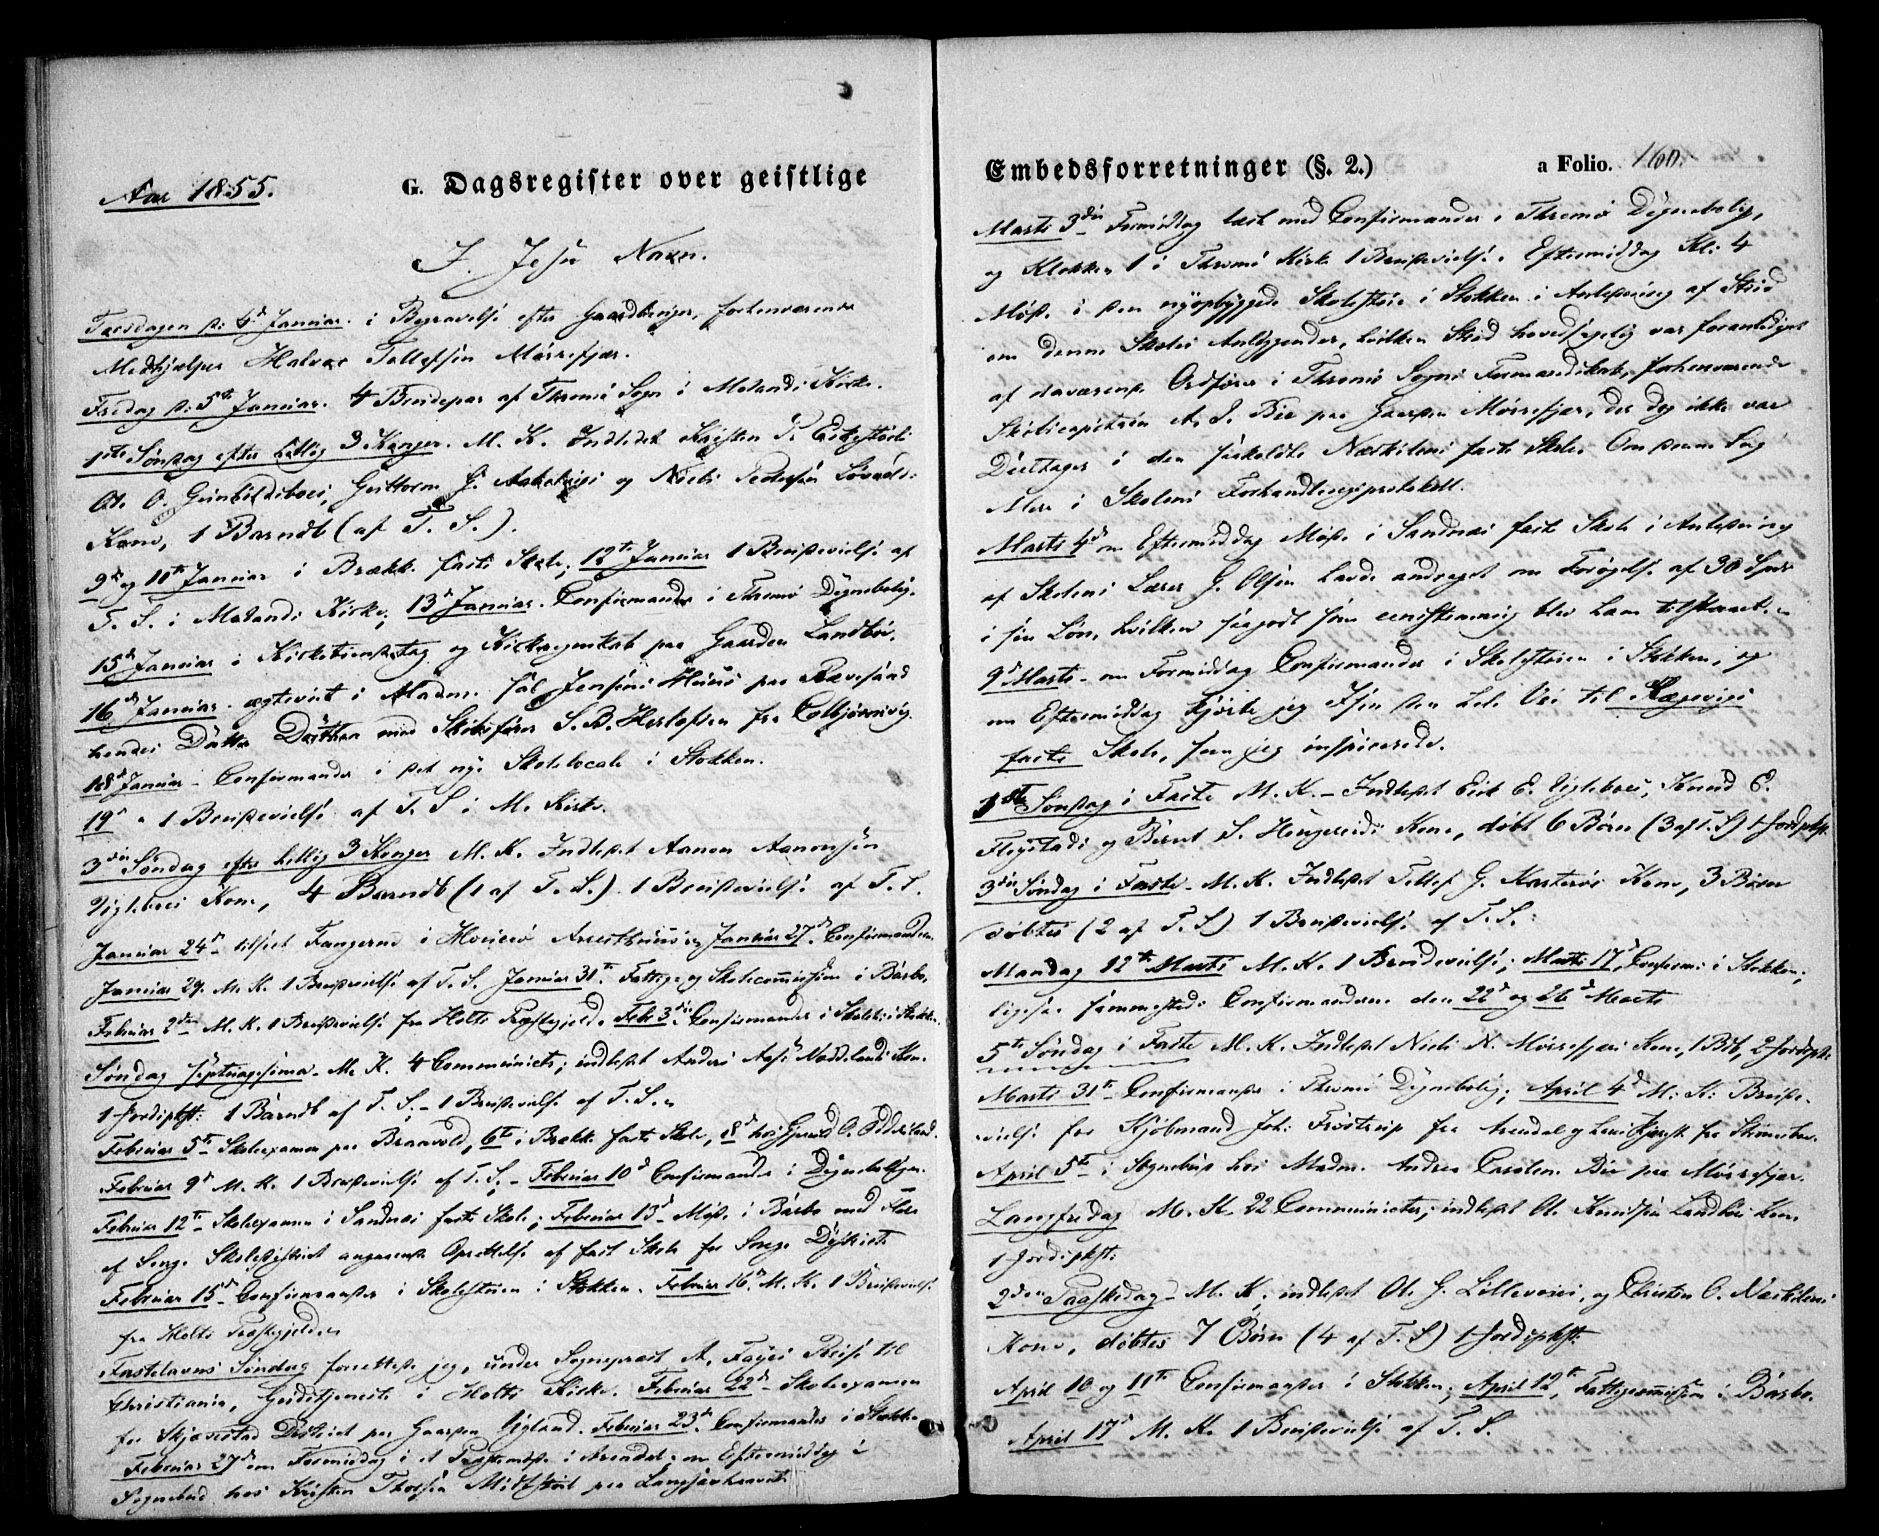 Aar 1855.
G. Dagsregister over geistlige
I Jesu Navn.
Torsdagen d: 4d Januar. i Begravelse efter Gaardbruger, forhenværende
Medhjælper Halvor Tellefsen Mørrefjær.
Fredag d: 5te Januar. 4 Brudepar af Thromø Sogn i Molands Kirke.
1ste Søndag efter hellig 3 Konger. M. K. Indledet Kristen
O. O. Guttorm og Niels Pedersen
Kone, 1 Barndb (af T. S.).
9d og 11te Januar i Brække faste Skole; 12te Januar 1 Brudevielse af
T. S. i Molands Kirke; 13d Januar. Confirmander i Thromø Døgnebolig.
15d Januar i Kirketiendetag og Kirkeregnskab paa Gaarden Landbøe.
16d Januar. ægteviet i Madm. sal. Jensines Huus paa Rævesand
hendes Datter Dorthea med Skibsfører S. B. Herlofsen fra Colbjørnsvig.
18d Januar - Confirmander i det nye Skolelocale i Stokken.
19d - 1 Brudevielse af T. S i M. Kirke.
3die Søndag efter hellig 3 Konger M. K. Indledet Aanon Aanonsen
Ugleboes Kone, 4 Barndb (1 af T. S.). 1 Brudevielse af T. S.
Januar 24d tilseet Fangerne i Arresthuus; Januar 27d Confirmanderne.
Januar 29. M. K. 1 Brudevielse af T. S. Januar 31te Fattige og Skolecommission i Barbo.
Februar 2den M. K. 1 Brudevielse fra Holts Præstegjeld. Febr 3die Confirmander i Skolest: i Stokken.
Søndag septuagesima. M. K. 4 Communicets; indledet Anders Noddelands Kone
1 Jordpkst: 1 Barndb af T. S. - 1 Brudevielse af T. S.
Februar 5te Skoleexamen paa Braavold, 6te i Brække faste Skole, 8d hos Gjeruld O.
Februar 9d M. K. 1 Brudevielse af T. S. - Februar 10d Confirmander i Døgneboligen.
Februar 12te Skoleexamen i Sandnæs faste Skole; Februar 13d Møde i Barbo med Flere
af Songe Skoledistrict angaaende Oprettelse af fast Skole for Songe District
Februar 15d Confirmander i Skolestuen i Stokken. Februar 16d M. K. 1 Brudevielse
fra Holts Præstegjeld
Fastelavns Søndag forrettede jeg, under Sognepræst A. Fayes Reise til
Christiania, Gudstjeneste i Holts Kirke. Februar 22d Skoleexamen
for Skjævestad District paa Gaarden Ugland. Februar 23d Confirmander i Stokken
Februar 27d om Formiddag i et i Arendal; om Eftermiddag i
Sognebud hos Kristen paa
Embedsforretninger (§. 2.)
a Folio. 160.
Marts 3die Formiddag læst med Confirmander i Thromø Døgnebolig,
og Klokken 1 i Thromø Kirke 1 Brudevielse. Eftermiddag Kl: 4
Møde i den nyopbyggede Skolestue i Stokken i Anledning af Strid
om denne Skoles Anliggender, hvilken Strid hovedsagelig var foranlediget
af daværende Ordfører i Thromø Sogns Formandskab, forhenværende
Skibscapitain A. S. Bie paa Gaarden Mørrefjær, der dog ikke var
Deeltager i den særskildte Næskilens faste Skole. Om denne Sag
Mere i Skolens Forhandlingsprotokoll.
Marts 4d om Eftermiddag Møde i Sandnæs faste Skole i Anledning
af Skolens Lærer G. Olsen havde andraget om Forøgelse af 30 Spdr
i sin Løn, hvilken saagodt som eenstemmig blev ham tilstaaet.
9d Marts - om Formiddag Confirmander i Skolestuen i Stokken, og
om Eftermiddag kjørte jeg den hele Vei til
faste Skole, som jeg inspicerede.
1ste Søndag i Faste M. K. - Indledet Eric E. Ugleboes, Knud C.
og Bernt S. Kone, døbt 6 Børn (3 af T. S) 1 Jordpkst.
3die Søndag i Faste. M. K. Indledet Tellef G. Kone, 3 Børn
døbtes (2 af T. S) 1 Brudevielse af T. S:
Mandag 12te Marts M. K. 1 Brudevielse; Marts 17d Confirm: i Stokken;
ligesaa sammesteds Confirmanderne den 22d og 26d Marts
5te Søndag i Faste M. K. Indledet Niels N. Mørrefjærs Kone, 1 Bdb, 2 Jordpkst.
Marts 31te Confirmander i Thromø Døgnebolig; April 4d M: K: Brude-
vielse for Kjøbmand Joh: Frostrup fra Arendal og
April 5te i Sognebud hos Madm. Andrea Caroline Bie paa Mørrefjær.
Langfredag M. K. 22 Communicets; indledet O. Knudsen Landbøes Kone
1 Jordpkst:
2den Paaskedag M. K. indledet O. G. Lillevoies, og Christen O. Næskilens
Kone, døbtes 7 Børn (4 af T. S) 1 Jordpkst.
April 10 og 11te Confirmander i Stokken; April 12te Fattigcommission i Barbo.
April 17d M. K. 1 Brudevielse af T. S.